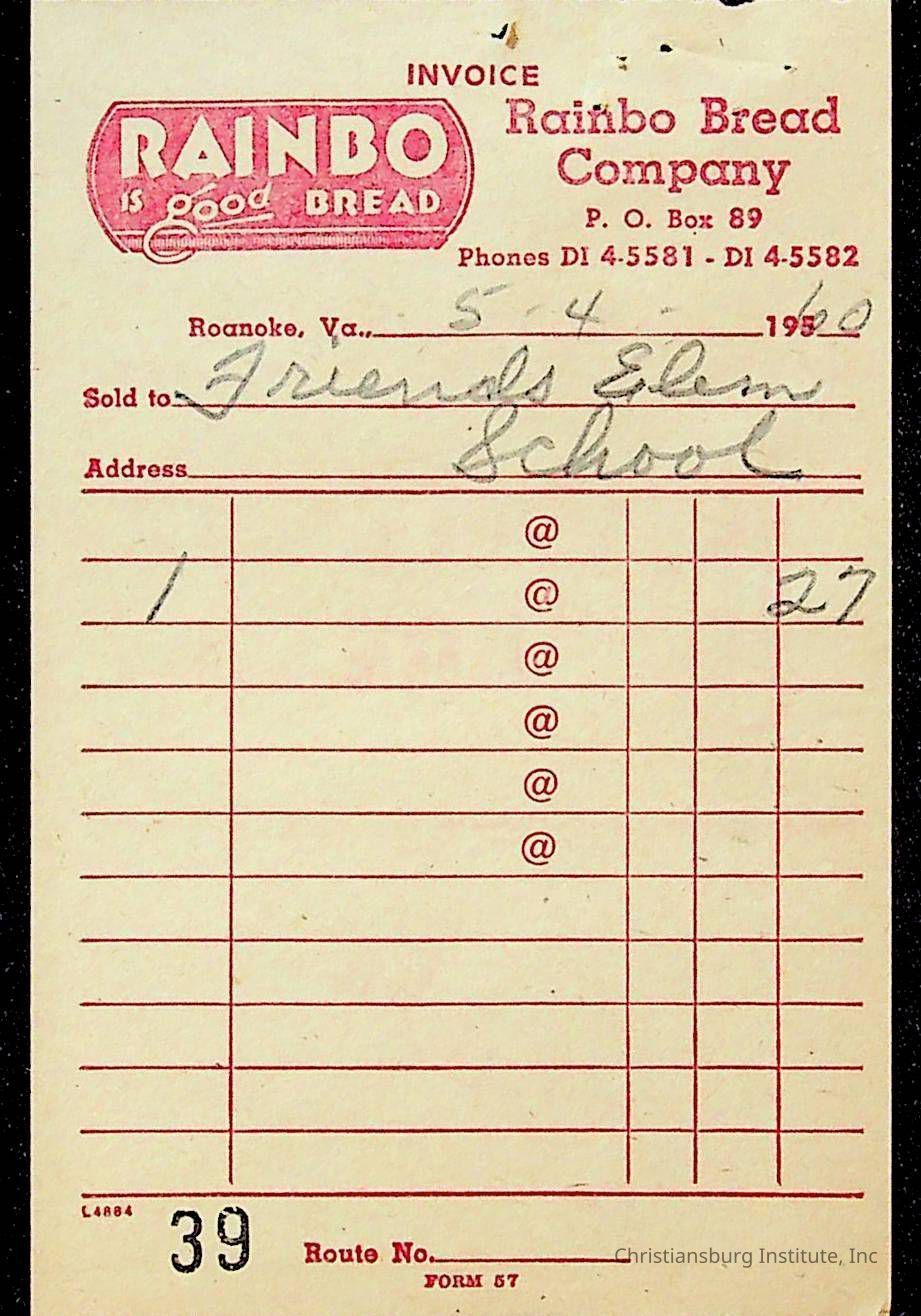 INVOICE
RAINBO
IS good BREAD
Rainbo Bread
Company
P. O. Box 89
Phones DI 4-5581 - DI 4-5582
Roanoke, Va., 5 - 4 - 195 60
Sold to Friends Elem
Address School
@
1 @ 27
@
@
@
@
L4884
39 Route No.
FORM 57
Christiansburg Institute, Inc